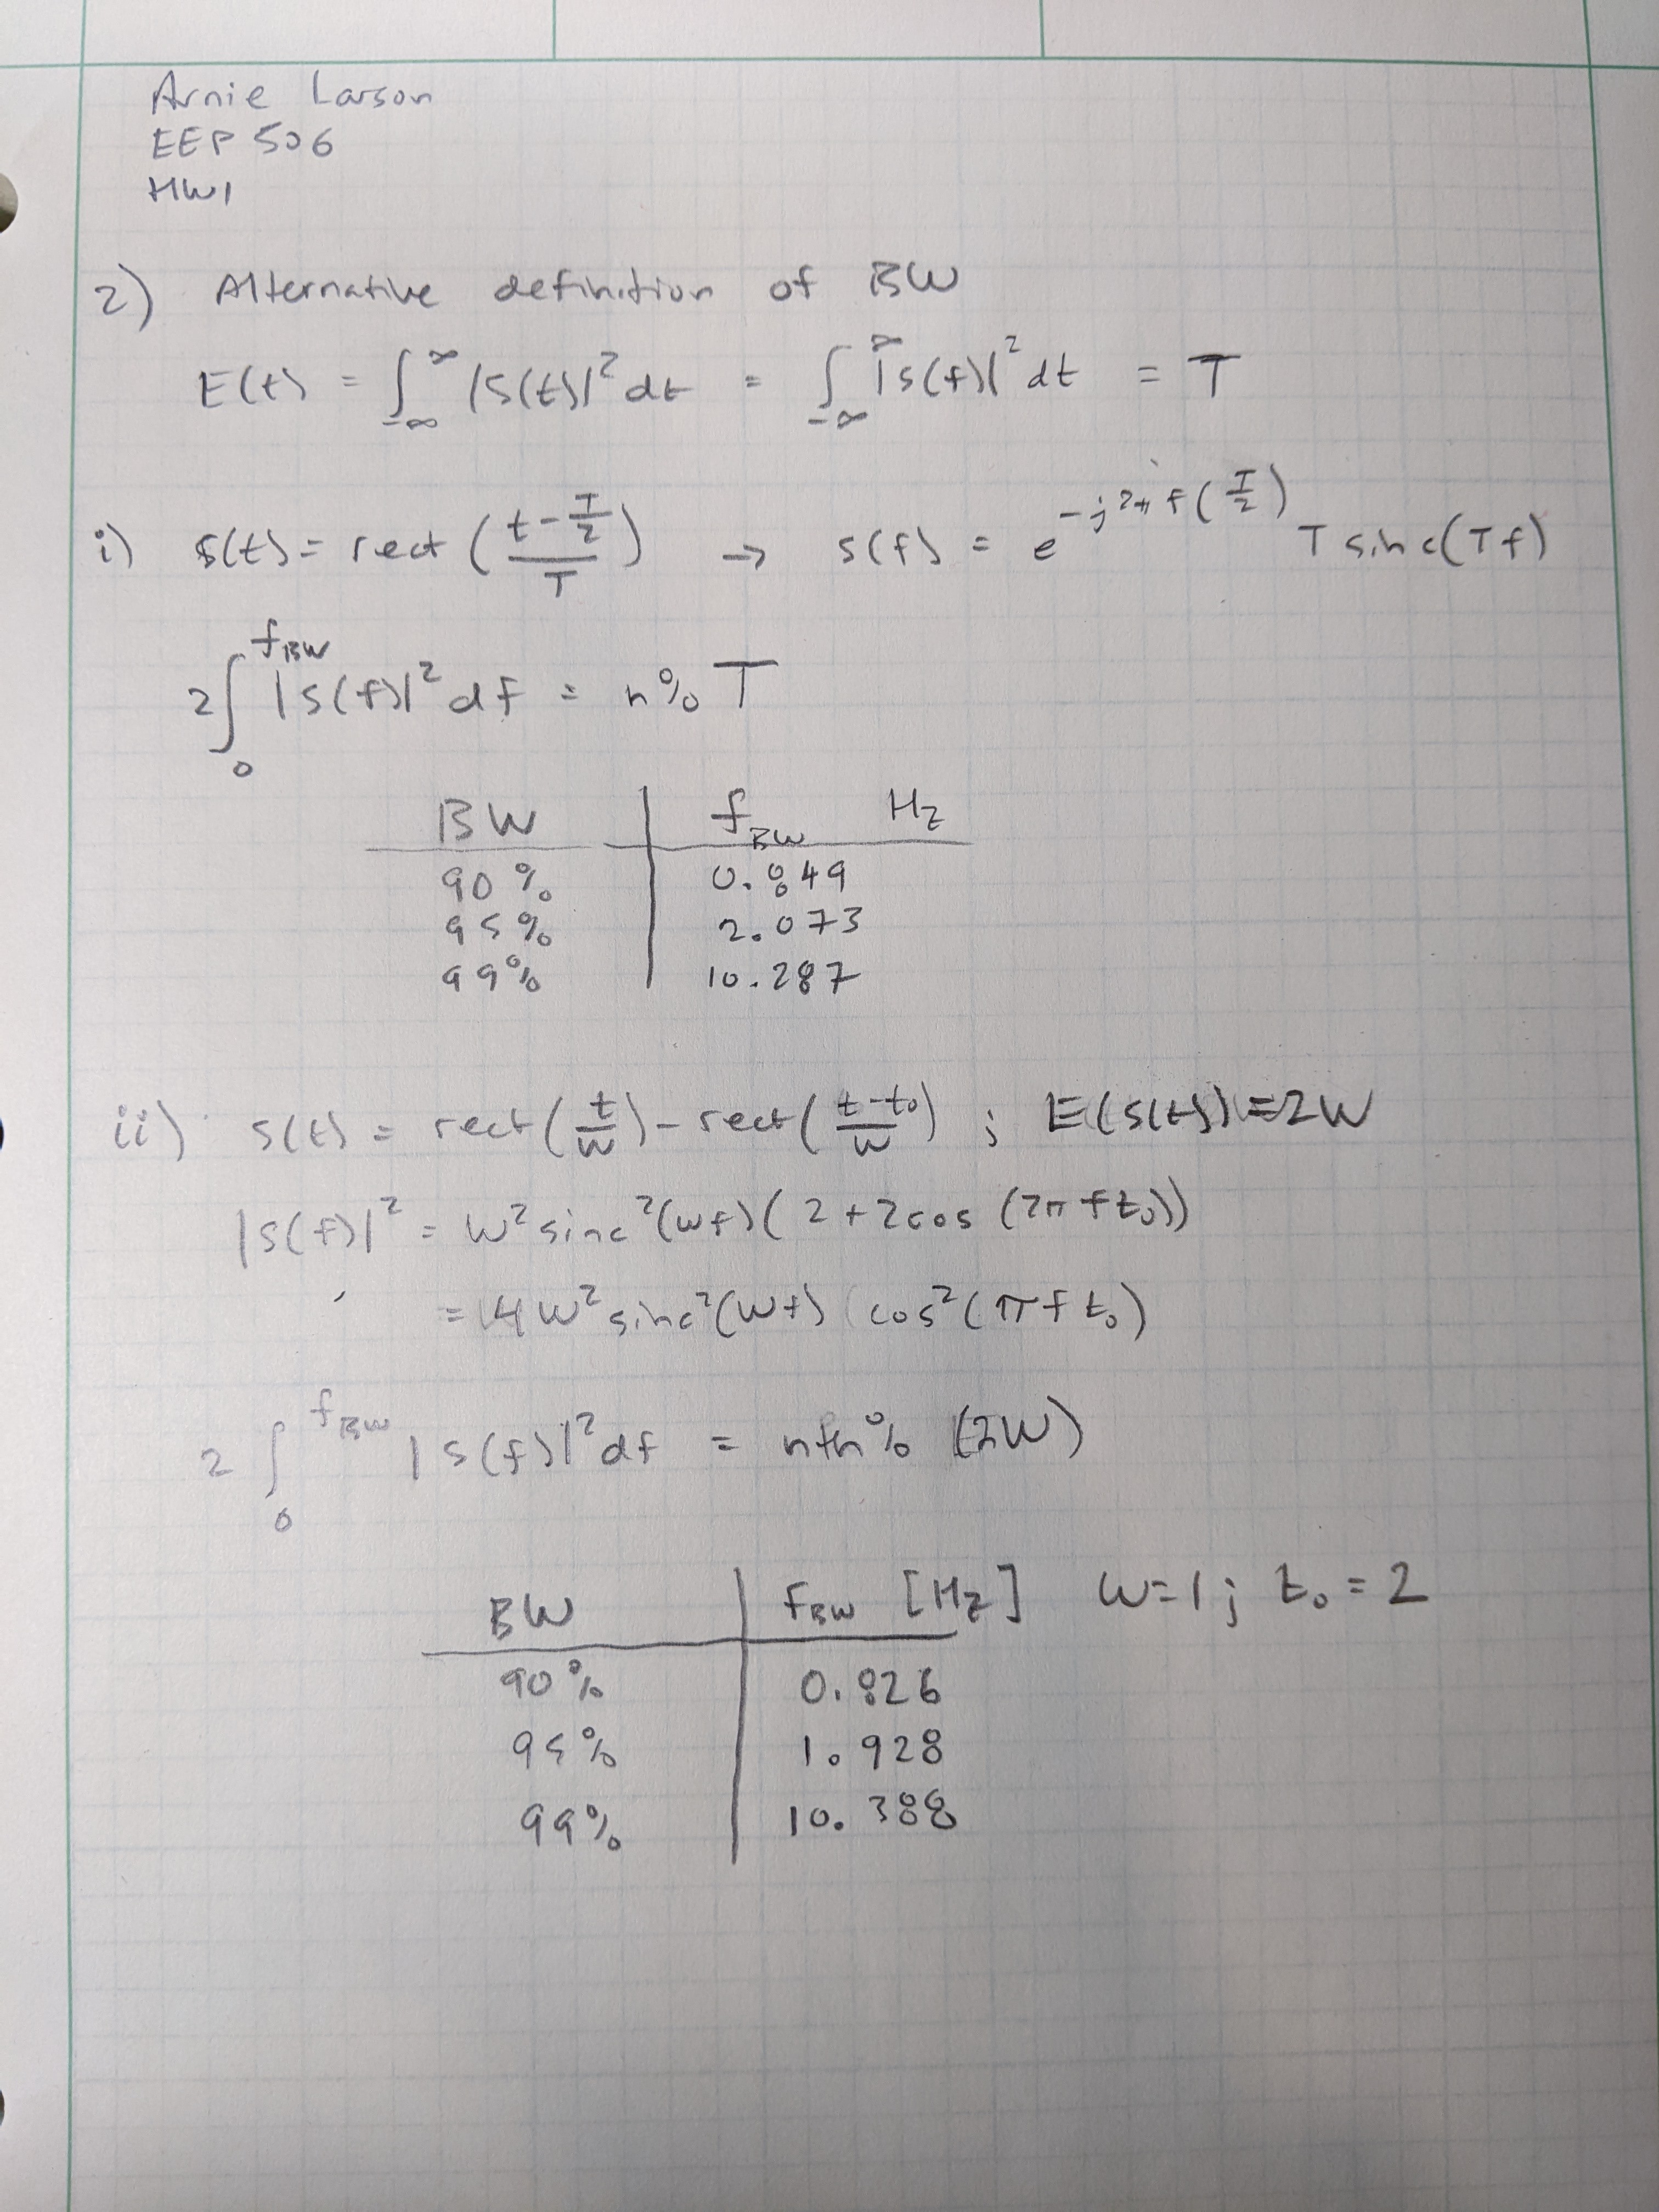 Arnie Larson
EEP 506
HW1
2) Alternative definition of BW
E(t) = ∫_{-∞}^{∞} |S(t)|² dt = ∫_{-∞}^{∞} |s(f)|² dt = T
i) s(t) = rect((t - T/2)/T) → s(f) = e^{-j2πf(T/2)} T sinc(Tf)
2∫_0^{f_BW} |s(f)|² df = n% T
BW | f_BW Hz
90% | 0.849
95% | 2.073
99% | 10.287
ii) s(t) = rect(t/W) - rect((t-t₀)/W) ; E(s(t)) = 2W
|s(f)|² = W² sinc²(Wf)(2 + 2cos(2πft₀))
= 4W² sinc²(Wf) cos²(πft₀)
2∫_0^{f_BW} |s(f)|² df = nth% (2W)
BW | f_BW [Hz] W=1; t₀=2
90% | 0.826
95% | 1.928
99% | 10.388